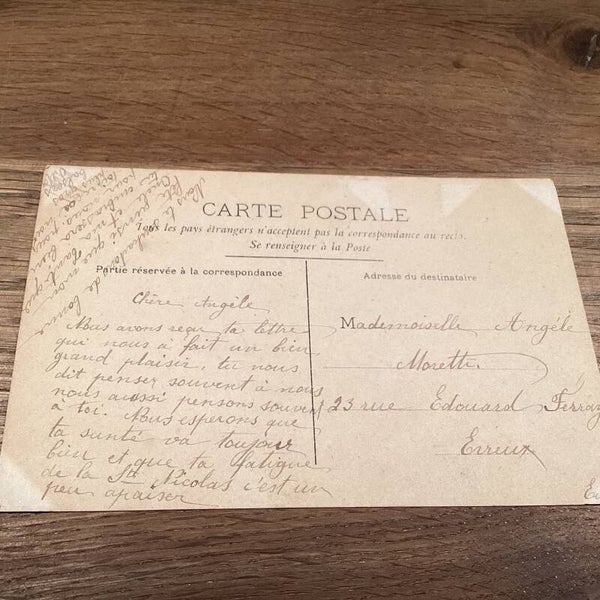 CARTE POSTALE
Tous les pays étrangers n'acceptent pas la correspondance au recto.
Se renseigner à la Poste
Partie réservée à la correspondance
Adresse du destinataire
Chère Angèle
Nous avons reçu ta lettre
qui nous à fait un bien
grand plaisir, tu nous
dit penser souvent à nous
nous aussi pensons souvent
à toi. Nous esperons que
ta sunté va toujour
bien et que ta fatigue
de la St Nicolas c'est un
peu apaiser
Mademoiselle Angéle
Moretti
23 rue Edouard Ferray
Evreux
Nous te
de bonne